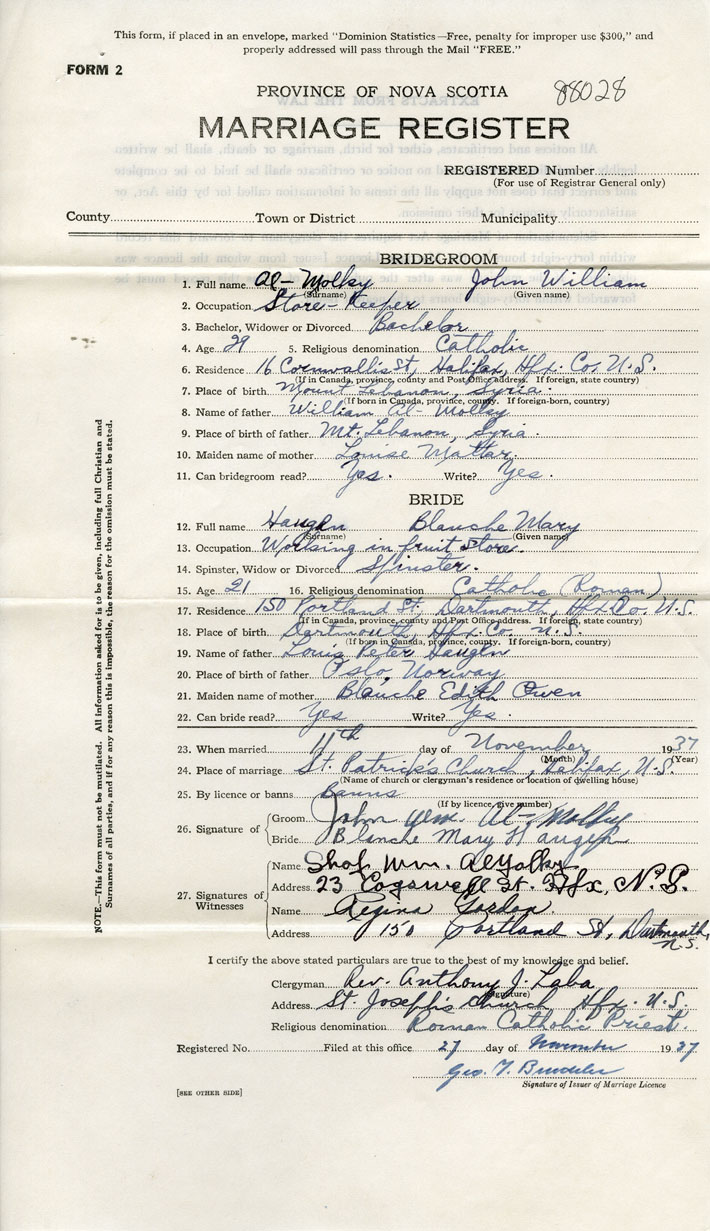 This form, if placed in an envelope, marked "Dominion Statistics—Free, penalty for improper use $300," and
properly addressed will pass through the Mail "FREE."
FORM 2
PROVINCE OF NOVA SCOTIA 88028
MARRIAGE REGISTER
REGISTERED Number
(For use of Registrar General only)
County Town or District Municipality
BRIDEGROOM
1. Full name Al-Molky John William
(Surname) (Given name)
2. Occupation Store-Keeper
3. Bachelor, Widower or Divorced Bachelor
4. Age 29 5. Religious denomination Catholic
6. Residence 16 Cornwallis St, Halifax, Hfx. Co. N.S.
(If in Canada, province, county and Post Office address. If foreign, state country)
7. Place of birth Mount Lebanon, Syria.
(If born in Canada, province, county. If foreign-born, country)
8. Name of father William Al-Molky
9. Place of birth of father Mt. Lebanon, Syria.
10. Maiden name of mother Louise Mattar.
11. Can bridegroom read? Yes. Write? Yes.
BRIDE
12. Full name Haugen Blanche Mary
(Surname) (Given name)
13. Occupation Working in fruit Store.
14. Spinster, Widow or Divorced Spinster.
15. Age 21 16. Religious denomination Catholic (Roman)
17. Residence 150 Portland St, Dartmouth, Hfx. Co. N.S.
(If in Canada, province, county and Post Office address. If foreign, state country)
18. Place of birth Dartmouth, Hfx. Co. N.S.
(If born in Canada, province, county. If foreign-born, country)
19. Name of father Louis Peter Haugen
20. Place of birth of father Oslo, Norway
21. Maiden name of mother Blanche Edith Owen
22. Can bride read? Yes Write? Yes.
23. When married 11th day of November 1937
(Month) (Year)
24. Place of marriage St. Patrick's Church, Halifax, N.S.
(Name of church or clergyman's residence or location of dwelling house)
25. By licence or banns Banns
(If by licence, give number)
26. Signature of Groom John Wm. Al-Molky
Bride Blanche Mary Haugen
27. Signatures of Witnesses Name Wm.
Address 23 Cogswell St. Hfx, N.S.
Name Regina
Address 150 Portland St, Dartmouth,
N.S.
I certify the above stated particulars are true to the best of my knowledge and belief.
Clergyman Rev. Anthony J. Laba
(Signature)
Address St. Joseph's Church Hfx. N.S.
Religious denomination Roman Catholic Priest.
Registered No. Filed at this office 27 day of November 1937
Geo. T.
Signature of Issuer of Marriage Licence
[SEE OTHER SIDE]
NOTE.—This form must not be mutilated. All information asked for is to be given, including full Christian and
Surnames of all parties, and if for any reason this is impossible, the reason for the omission must be stated.